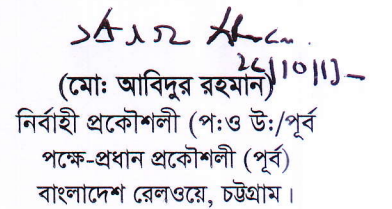 (মোঃ আবিদুর রহমান)
নির্বাহী প্রকৌশলী (প:ও উ:/পূর্ব
পক্ষে-প্রধান প্রকৌশলী (পূর্ব)
বাংলাদেশ রেলওয়ে, চট্টগ্রাম।